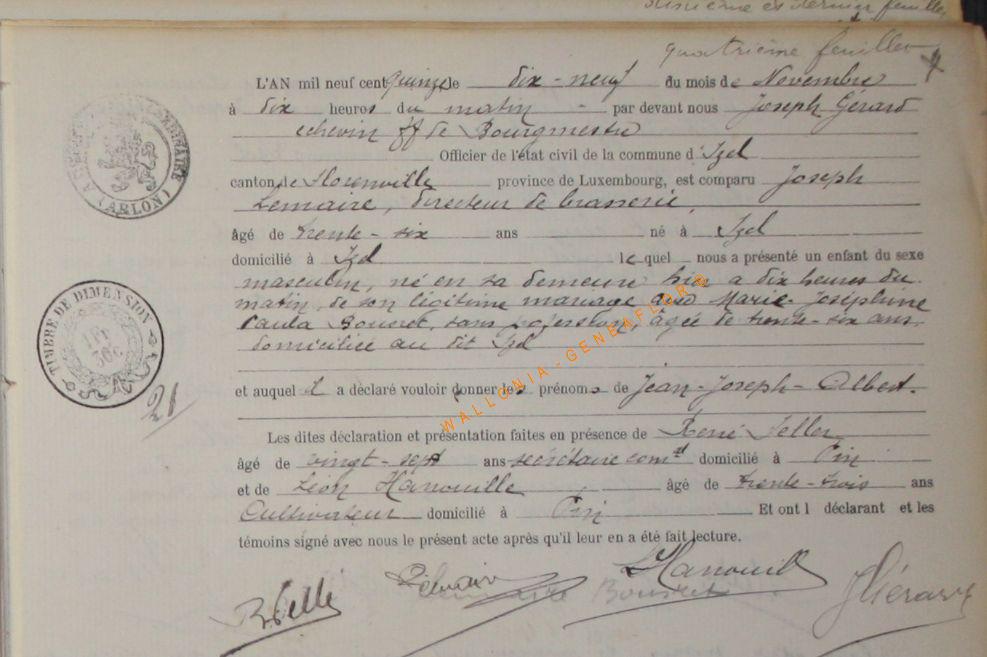 dernier feuillet
quatrième feuillet
L'AN mil neuf cent quinze le dix-neuf du mois de Novembre
à dix heures du matin par devant nous Joseph Gérard
echevin ff de Bourgmestre
Officier de l'état civil de la commune d'Izel
canton de Florenville province de Luxembourg, est comparu Joseph
Lemaire, directeur de brasserie,
âgé de trente-six ans né à Izel
domicilié à Izel lequel nous a présenté un enfant du sexe
masculin, né en sa demeure hier a dix heures du
matin, de son légitime mariage avec Marie-Joséphine
Paula Bouret, sans profession, âgée de trente-six ans,
domiciliée au dit Izel
et auquel il a déclaré vouloir donner les prénoms de Jean-Joseph-Albert.
Les dites déclaration et présentation faites en présence de René Seller
âgé de vingt-sept ans secrétaire comal domicilié à Pin
et de Léon Hanouille âgé de trente-trois ans
Cultivateur domicilié à Pin Et ont l déclarant et les
témoins signé avec nous le présent acte après qu'il leur en a été fait lecture.
LHanouill
JGérard
ARLON
TIMBRE DE DIMENSION
21
WALLONIA-GENEAFLORG